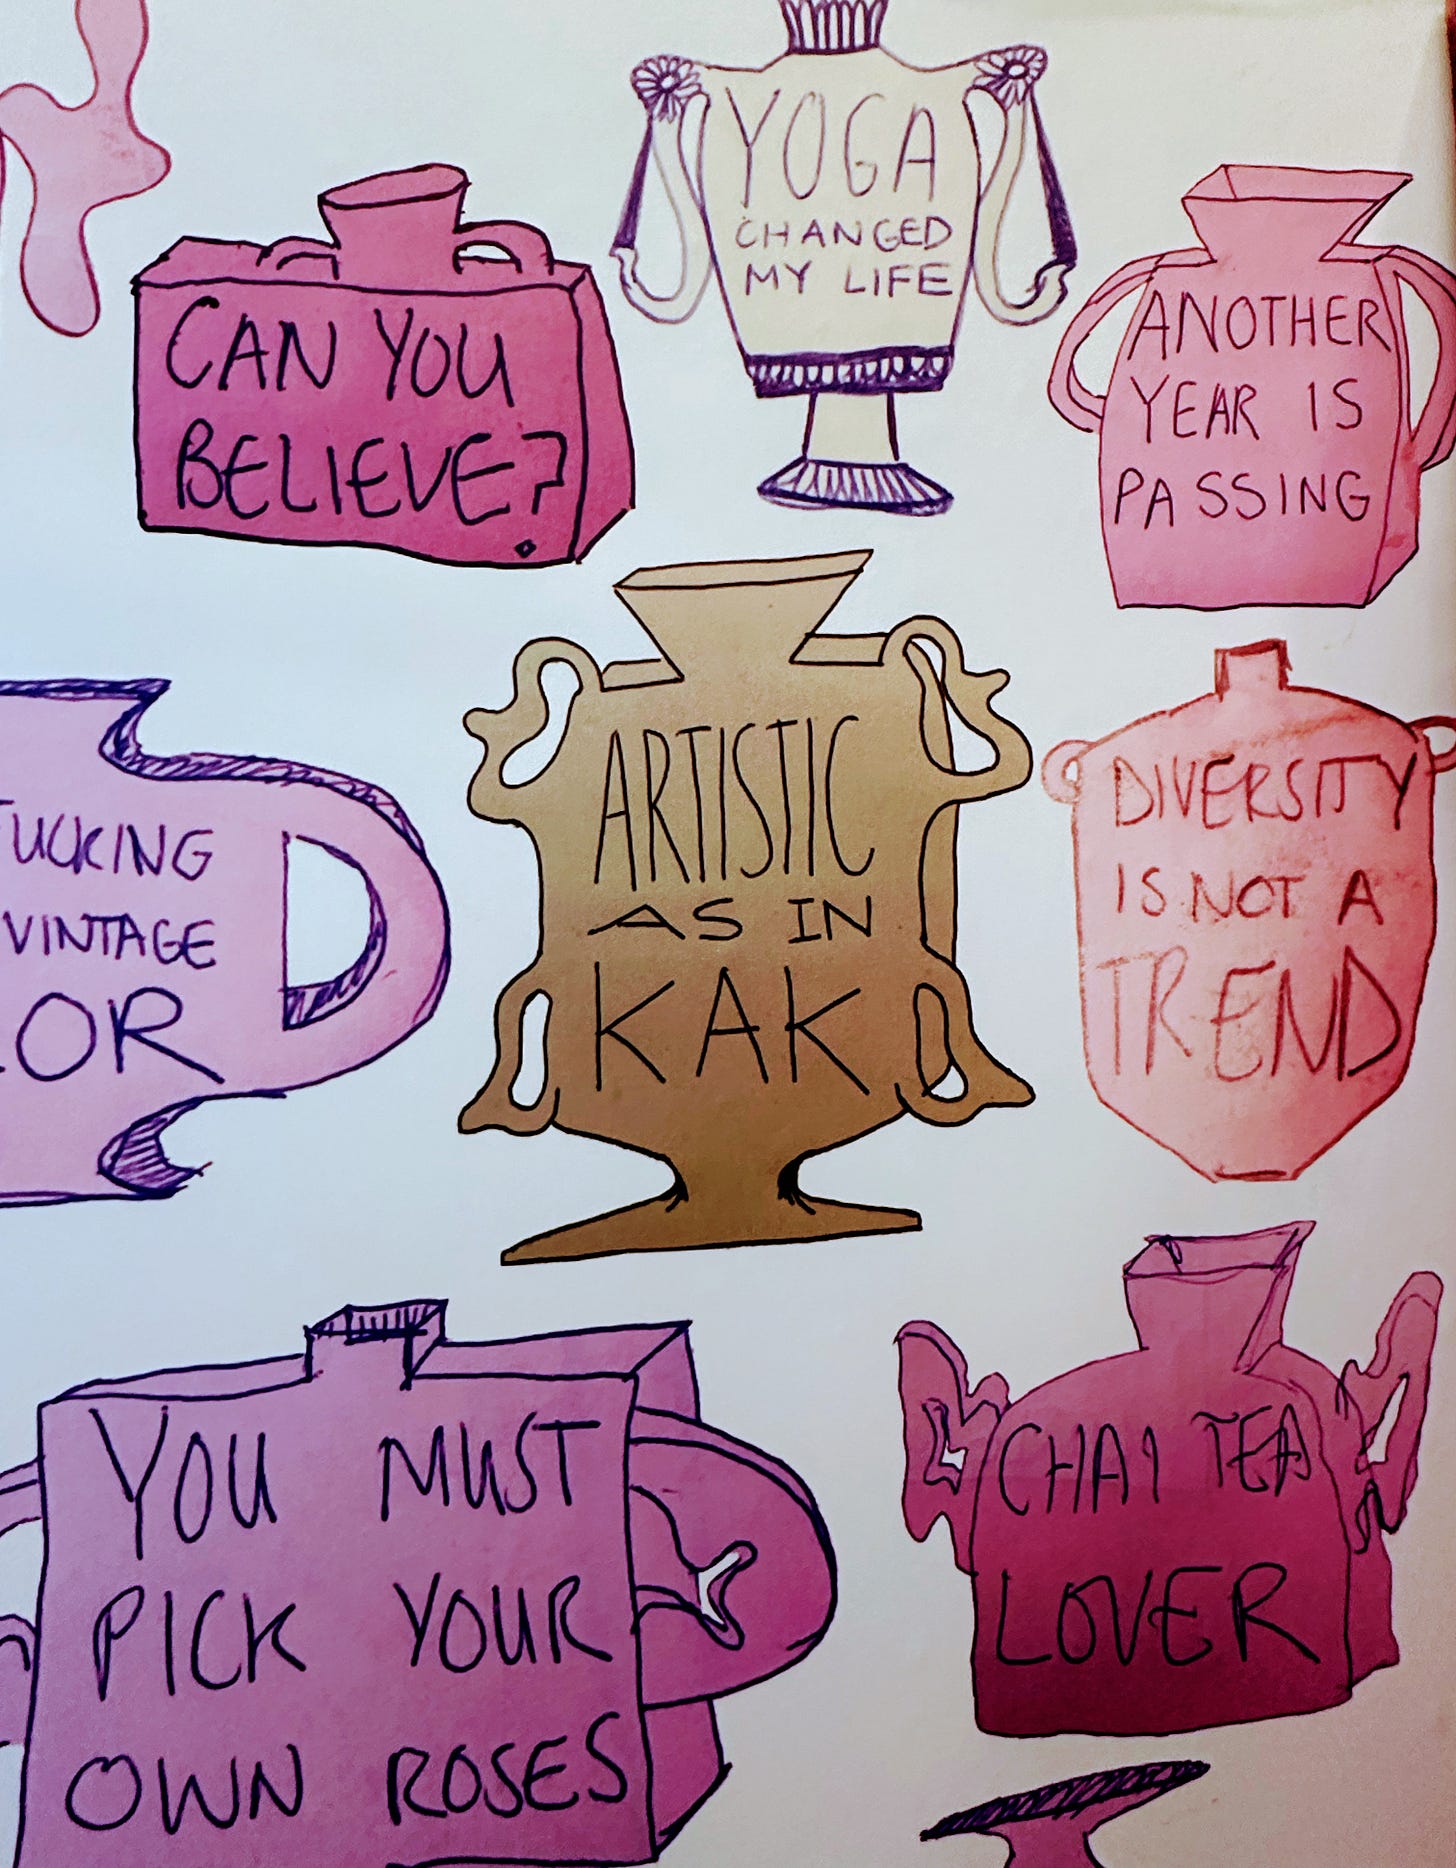 YOGA
CHANGED
MY LIFE
CAN YOU
BELIEVE?
ANOTHER
YEAR IS
PASSING
ARTISTIC
AS IN
KAK
DIVERSITY
IS NOT A
TREND
FUCKING
VINTAGE
OR
YOU MUST
PICK YOUR
OWN ROSES
CHAI TEA
LOVER